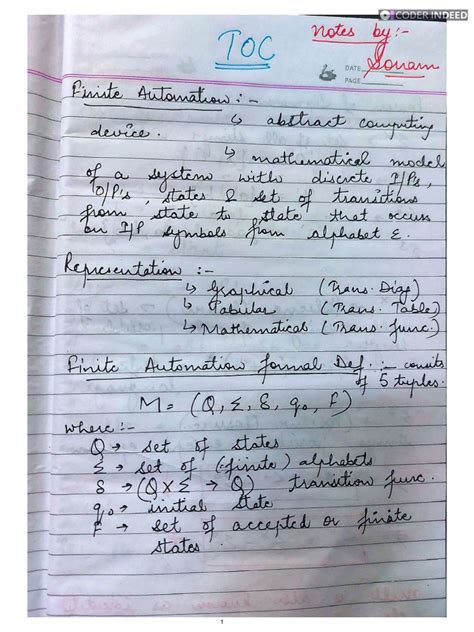 CODER INDEED
TOC
Notes by:-
Sonam
DATE
PAGE
Finite Automation :-
↳ abstract computing
device.
↳ mathematical model
of a system with discrete I/P's,
O/P's, states & set of transitions
from state to state that occurs
on I/P symbols from alphabet Σ.
Representation :-
↳ Graphical (Trans. Diag)
↳ Tabular (Trans. Table)
↳ Mathematical (Trans. func.)
Finite Automation formal Def. :- consits
of 5 tuples.
M = (Q, Σ, δ, q₀, F)
where :-
Q → set of states
Σ → set of (finite) alphabets
δ → (Q X Σ → Q) transition func.
q₀ → initial state
F → set of accepted or finate
states.
1